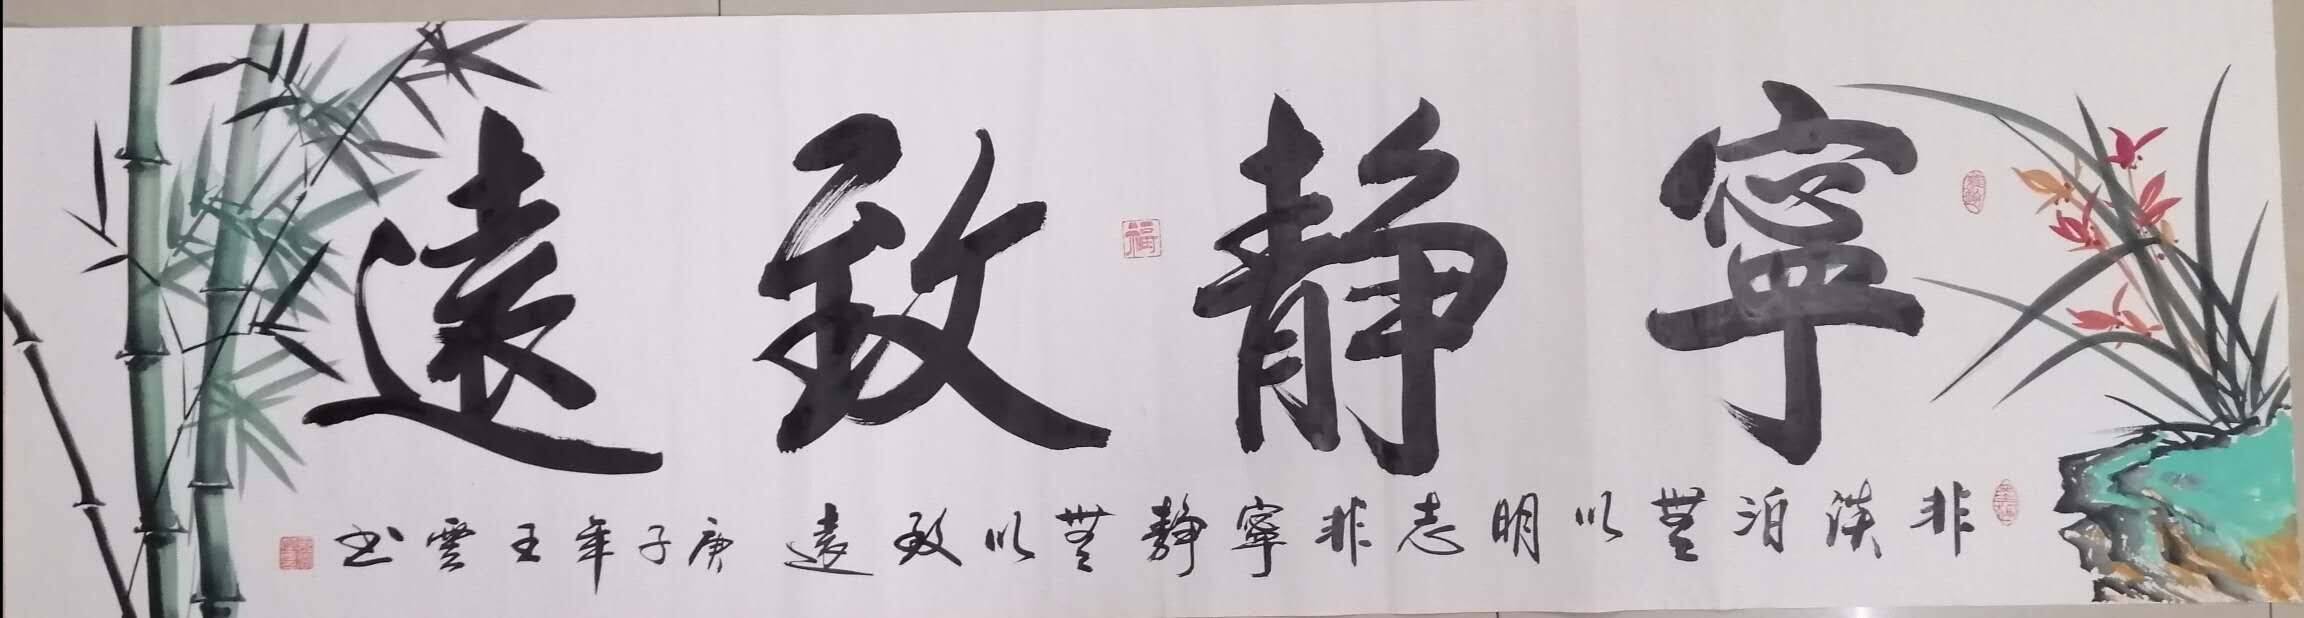 寧靜致遠
非淡泊無以明志非寧靜無以致遠 庚子年王雲书
福